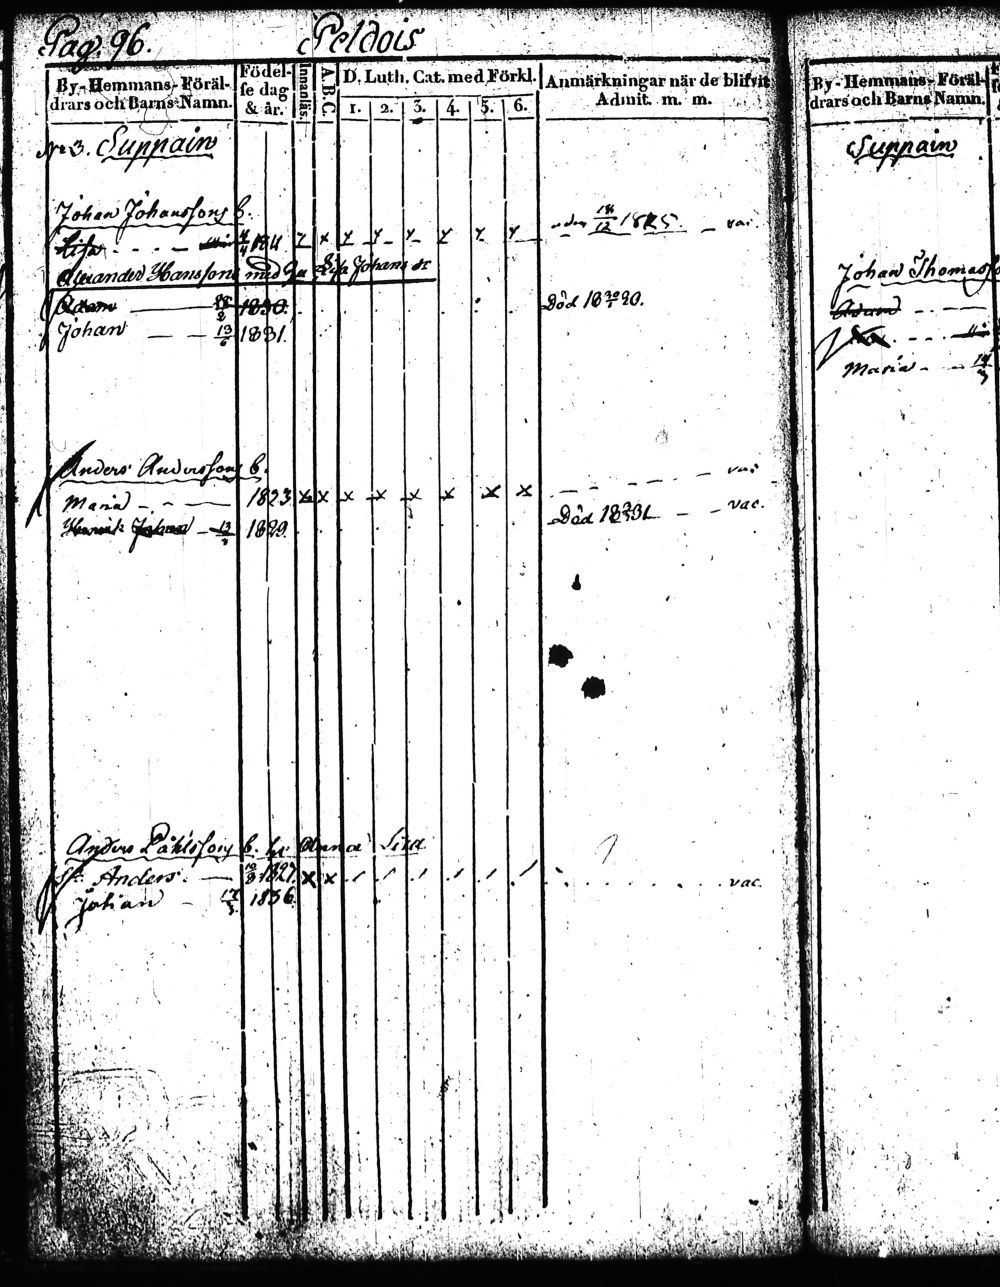 Pag. 96. Peldois
By-Hemmans-Föräl-drars och Barns Namn. Födel-se dag & år. Innanläs. A.B.C. D. Luth. Cat. med Förkl. 1. 2. 3. 4. 5. 6. Anmärkningar när de blifvit Admit. m. m.
No 3. Suppain
Johan Johanssons b.
Lisa 1811 18/12 1825. vac.
Alexander Hanssons med Lisa Johans dr
Adam 1830. Död 1890.
Johan 13/6 1831.
Anders Anderssons b. vac
Maria 1823 x x x x x x x x
Henrik Johan 13 1829. Död 1831 vac.
Anders Påhlssons b. Anna Lisa
Anders 1827. x x vac.
Johan 17 1836
By-Hemmans-Föräl-drars och Barns Namn.
Suppain
Johan Thomass
Adam
Maria